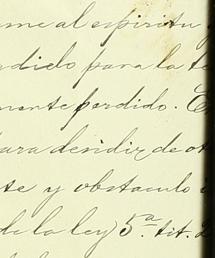 me al espiritu y
dido para la te
mente perdido. E
para decidir de ot
te y obstaculo i
de la ley 5.ª tit. 2